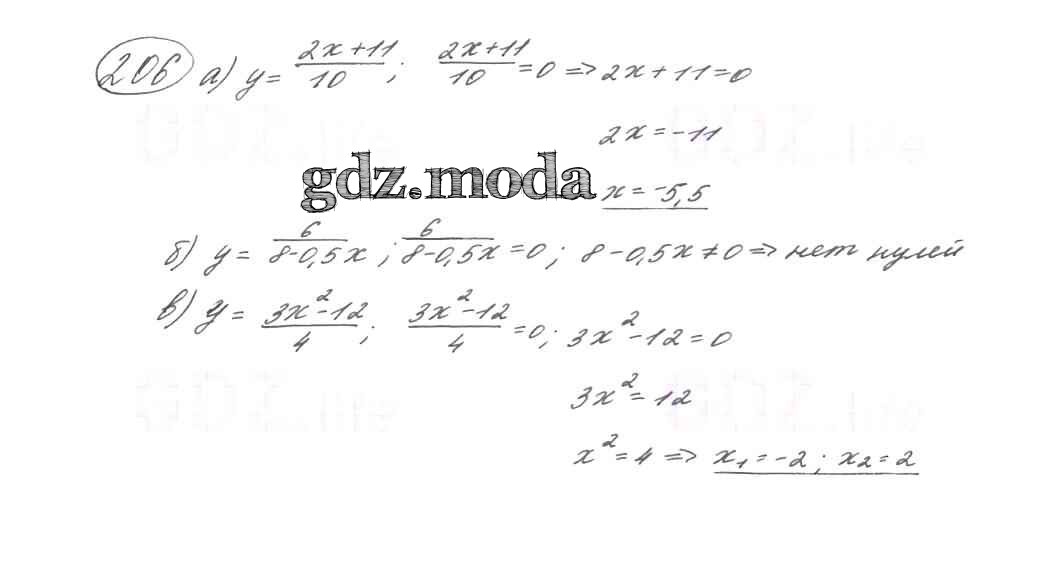 206 а) y = (2x+11)/10 ; (2x+11)/10 = 0 ⇒ 2x+11=0
2x = -11
gdz.moda
x = -5,5
б) y = 6/(8-0,5x) ; 6/(8-0,5x) = 0 ; 8-0,5x ≠ 0 ⇒ нет нулей
в) y = (3x²-12)/4 ; (3x²-12)/4 = 0 ; 3x²-12 = 0
3x² = 12
x² = 4 ⇒ x₁ = -2 ; x₂ = 2